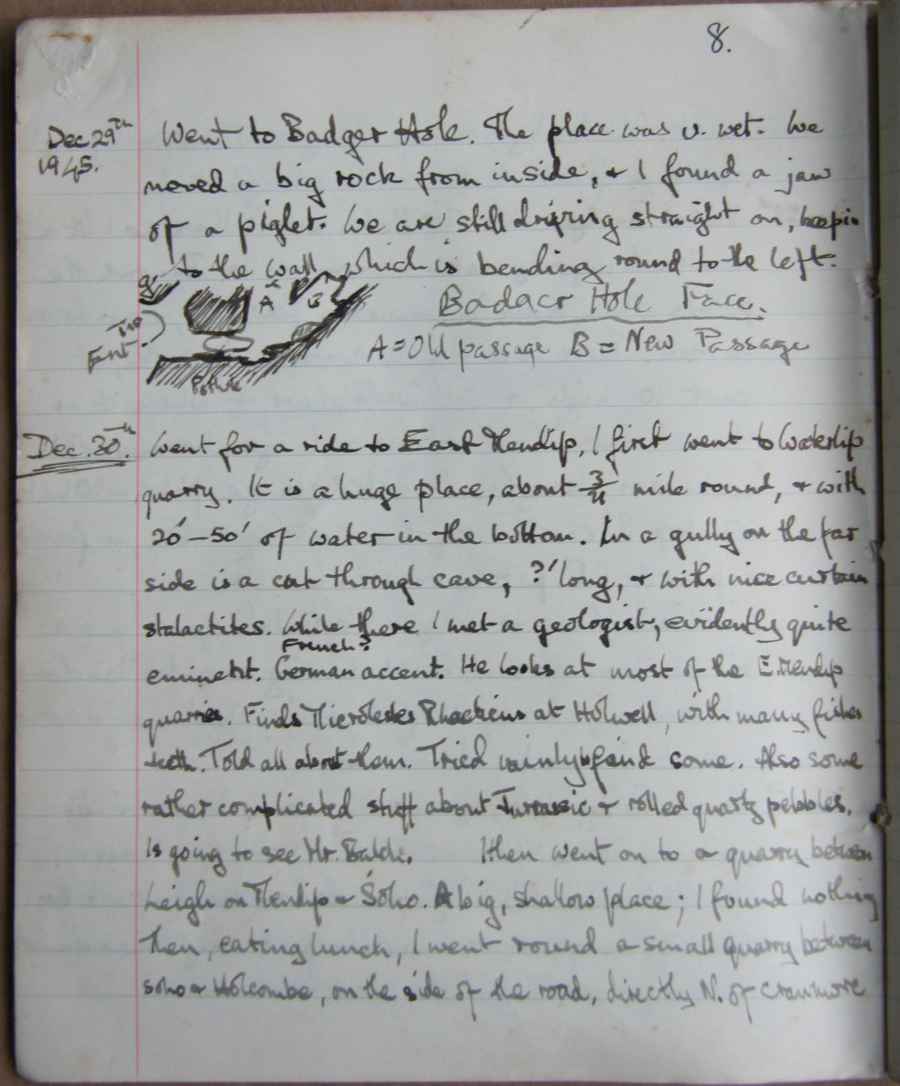 8.
Dec 29th 1945.
Went to Badger Hole. The place was v. wet. We
moved a big rock from inside, & I found a jaw
of a piglet. We are still driving straight on, keepin
g to the wall, which is bending round to the left.
A B
Badger Hole Face.
Ent.
A = Old passage B = New Passage
Dec. 30th.
Went for a ride to East Mendip, I first went to Waterlip
quarry. It is a huge place, about 3/4 mile round, & with
20' – 50' of water in the bottom. In a gully on the far
side is a cut through cave, ?' long, & with nice curtain
stalactites. While there I met a geologist, evidently quite
French?
eminent. German accent. He looks at most of the E. Mendip
quarries. Finds Microlestes Rhaeticus at Holwell, with many fishes
teeth. Told all about them. Tried vainly to find some. Also some
rather complicated stuff about Jurassic & rolled quartz pebbles.
Is going to see Mr. Balch. I then went on to a quarry between
Leigh on Mendip & Soho. A big, shallow place; I found nothing
Then, eating lunch, I went round a small quarry between
Soho & Holcombe, on the side of the road, directly N. of Cranmore